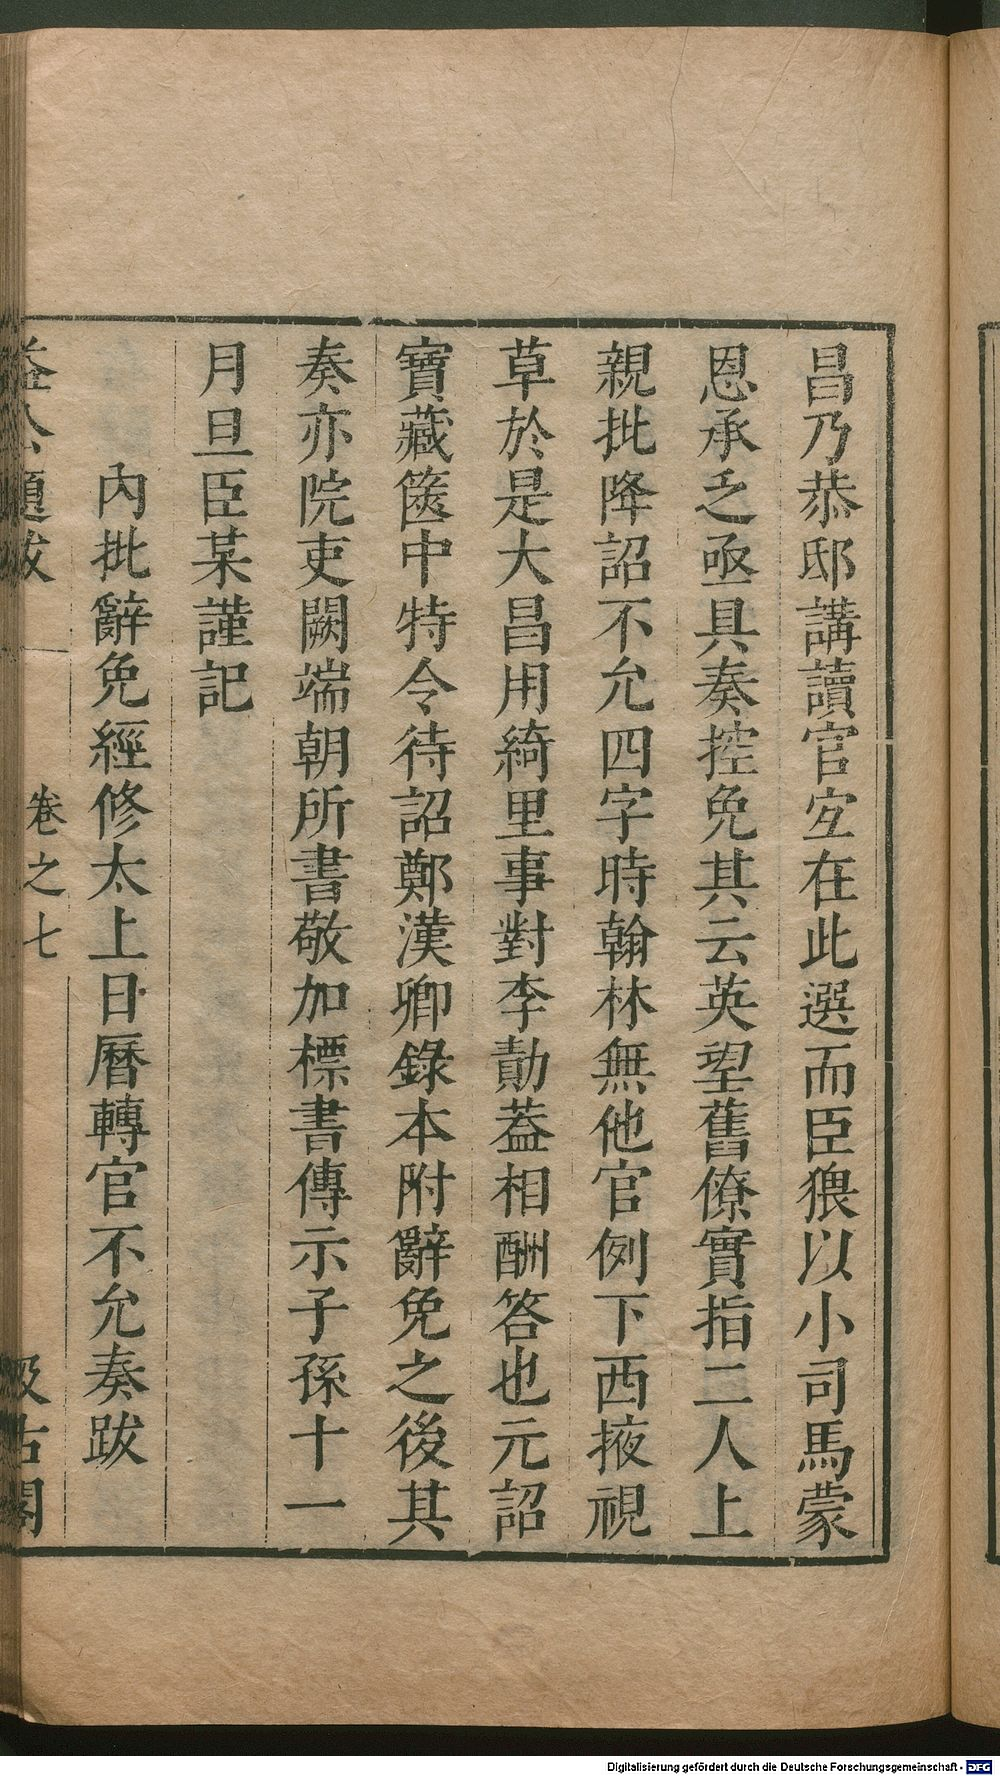 昌乃恭邸講讀官宐在此選而臣猥以小司馬蒙
恩承乏亟具奏控免其云英望舊僚實指二人上
親批降詔不允四字時翰林無他官例下西掖視
草於是大昌用綺里事對李勣葢相酬答也元詔
寶藏篋中特令待詔鄭漢卿錄本附辭免之後其
奏亦院吏闕端朝所書敬加標書傳示子孫十一
月旦臣某謹記
內批辭免經修太上日曆轉官不允奏跋
益公題跋 卷之七 汲古閣
Digitalisierung gefördert durch die Deutsche Forschungsgemeinschaft - DFG